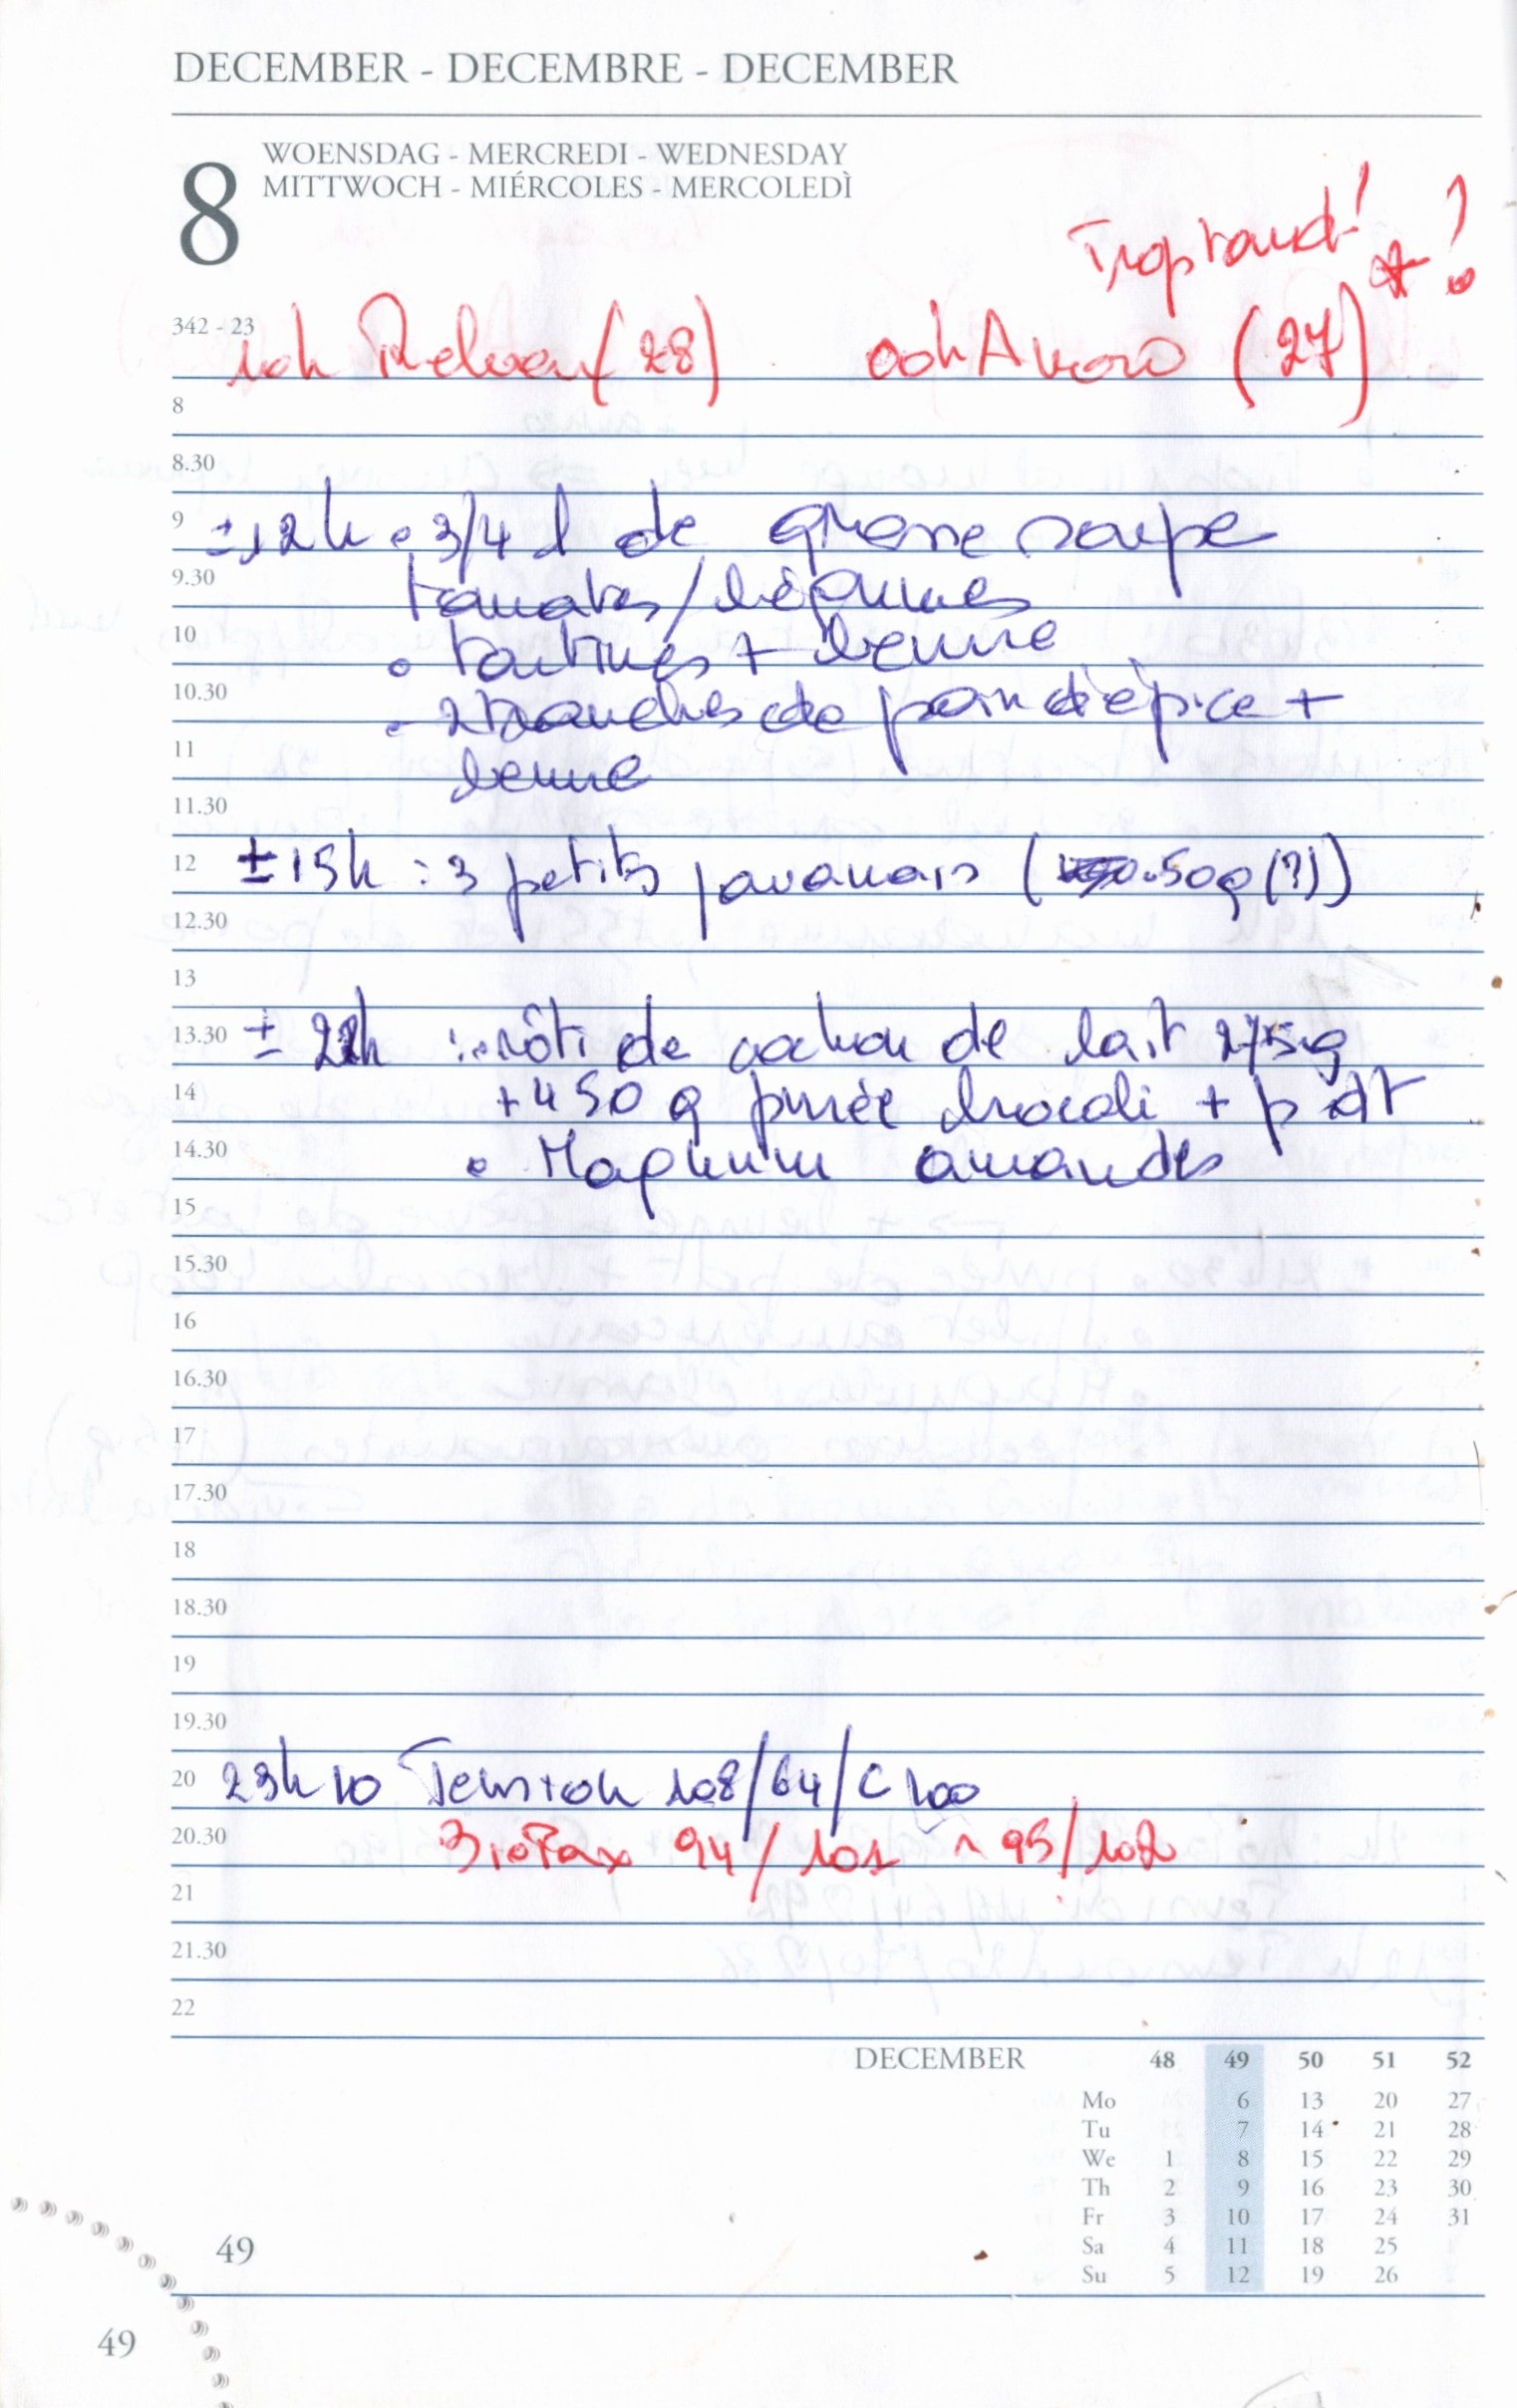 DECEMBER - DECEMBRE - DECEMBER
8
WOENSDAG - MERCREDI - WEDNESDAY
MITTWOCH - MIÉRCOLES - MERCOLEDÌ
Trop tard! + ?
342 - 23
10h Relver (28) 00h Avoro (27)
8
8.30
9 ±12h • 3/4 l de grosse soupe
9.30 tomates/légumes
10 • tartines + beurre
10.30 - 2 tranches de pain d'épice +
11 beurre
11.30
12 ±15h : 3 petits javanais ( 50g (?))
12.30
13
13.30 ± 22h : • rôti de cochon de lait 275g
14 +450 g purée brocoli + pdt
14.30 • Magnum amandes
15
15.30
16
16.30
17
17.30
18
18.30
19
19.30
20 23h10 Tension 108/64/C100
20.30 94/101 95/102
21
21.30
22
DECEMBER 48 49 50 51 52
Mo 6 13 20 27
Tu 7 14 21 28
We 1 8 15 22 29
Th 2 9 16 23 30
Fr 3 10 17 24 31
Sa 4 11 18 25
Su 5 12 19 26
49
49